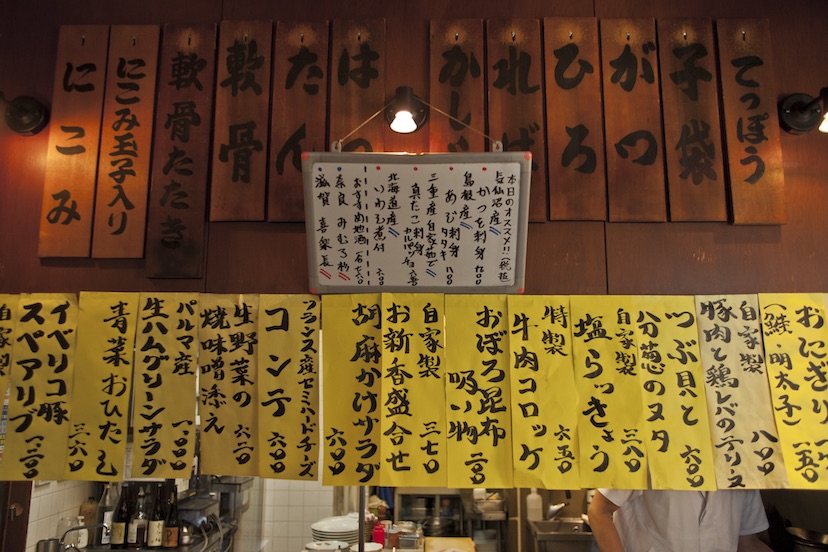 てっぽう
子袋
がつ
ひろ
れば
かしら
はつ
たん
軟骨
軟骨たたき
にこみ玉子入り
にこみ
本日のオススメ!!(税抜)
気仙沼産
かつを刺身
島根産
あじ刺身
タタキ
三重産
真たこ刺身
北海道産
いわし煮付
おすすめ地酒
奈良 みむろ杉
滋賀 喜楽長
おにぎり
(鮭・明太子)
自家製
豚肉と鶏レバのテリーヌ
つぶ貝と
分葱のヌタ
六〇〇
自家製
塩らっきょう
三八〇
特製
牛肉コロッケ
六五〇
おぼろ昆布
吸い物
自家製
お新香盛合せ
三七〇
胡麻かけサラダ
六〇〇
フランス産セミハードチーズ
コンテ
六〇〇
生野菜の
焼味噌添え
パルマ産
生ハムグリーンサラダ
青菜おひたし
三六〇
イベリコ豚
スペアリブ
自家製